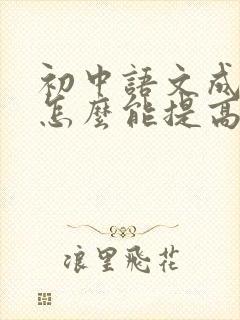 初中語文成
怎麼能提高
浪里飛花